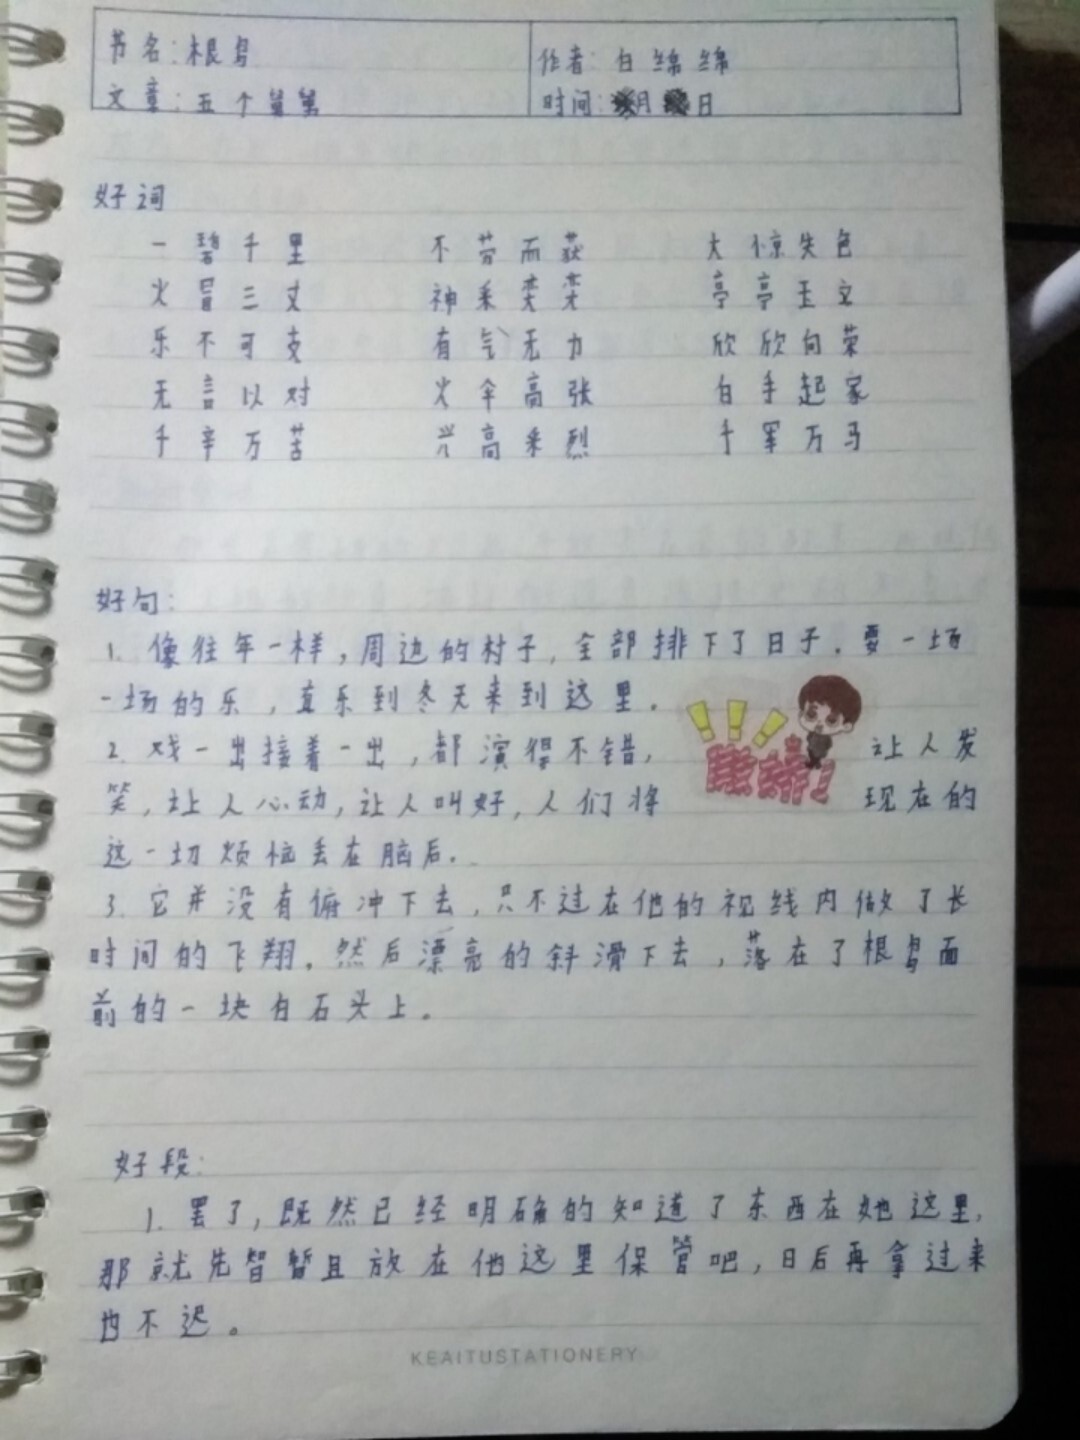 书名：根鸟
作者：白绵绵
文章：五个
时间：月 日
好词
一碧千里 不劳而获 大惊失色
火冒三丈 神采奕奕 亭亭玉立
乐不可支 有气无力 欣欣向荣
无言以对 火伞高张 白手起家
千辛万苦 兴高采烈 千军万马
好句：
1. 像往年一样，周边的村子，全部排下了日子。要一场
一场的乐，直乐到冬天来到这里。
2. 戏一出接着一出，都演得不错， 让人发
笑，让人心动，让人叫好，人们将 现在的
这一切烦恼丢在脑后。
3. 它并没有俯冲下去，只不过在他的视线内做了长
时间的飞翔。然后漂亮的斜滑下去，落在了根鸟面
前的一块白石头上。
好段：
1. 罢了，既然已经明确的知道了东西在她这里，
那就先智暂且放在他这里保管吧，日后再拿过来
也不迟。
KEAITUSTATIONERY